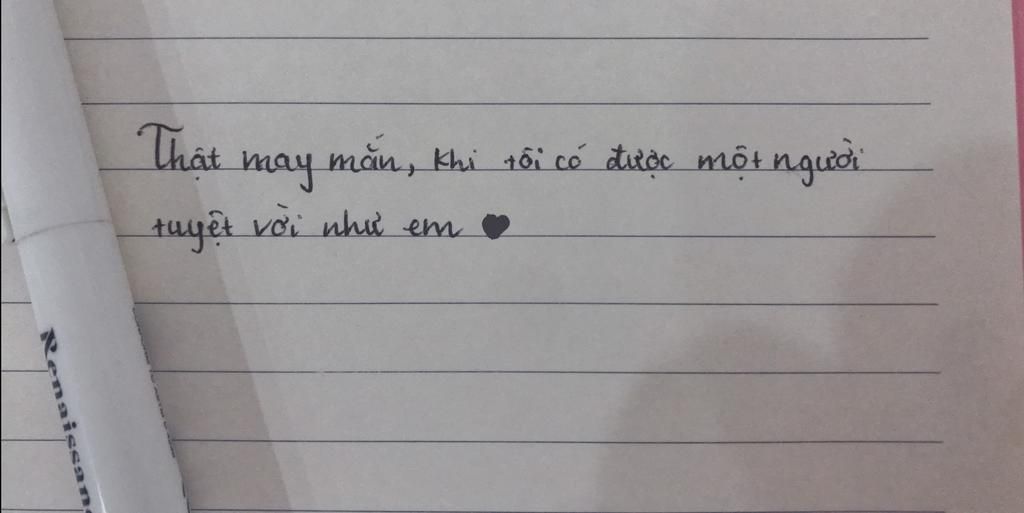 Thật may mắn, khi tôi có được một người
tuyệt vời như em ♥
Renaissan